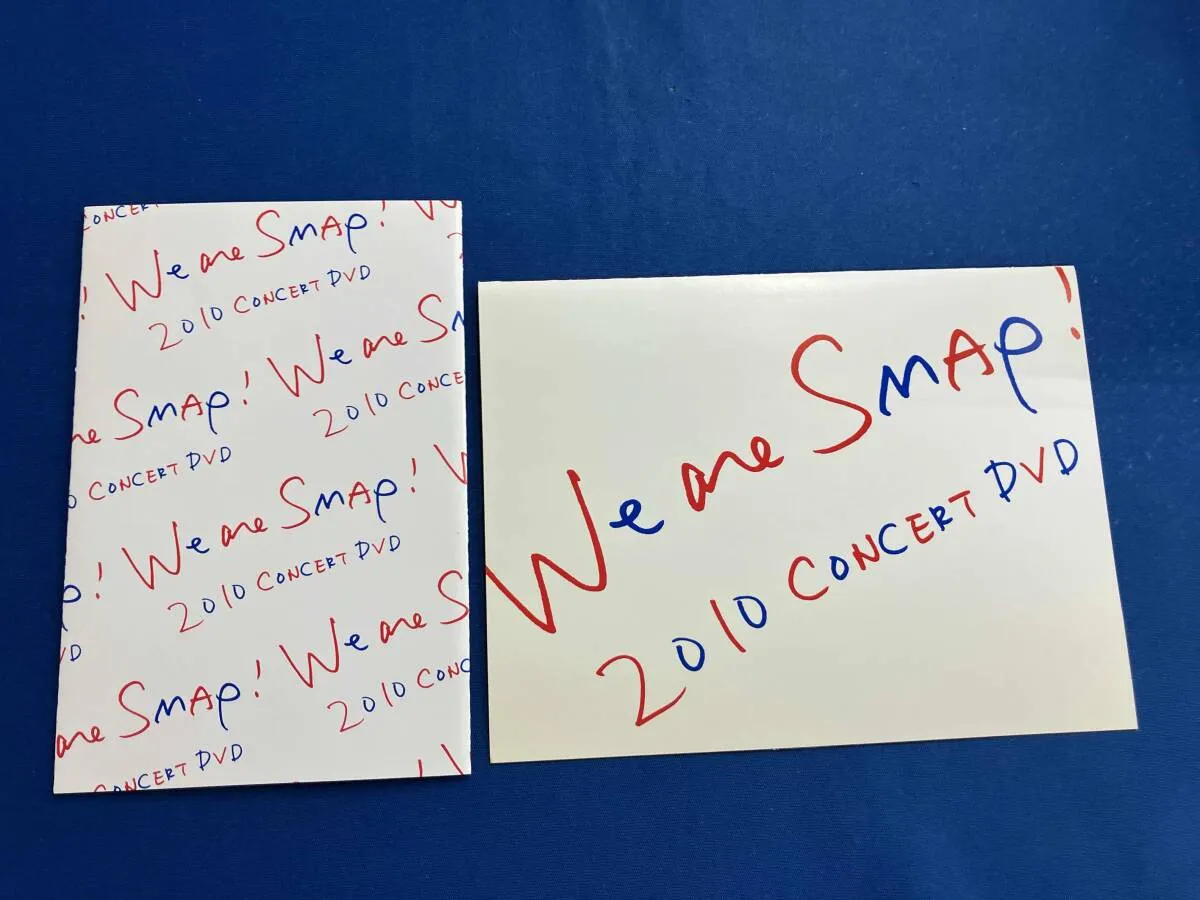 CONCERT
! We are SMAP! W
2010 CONCERT DVD
re SMAP! We are SM
0 CONCERT DVD 2010 CONCE
We are SMAP! W
2010 CONCERT DVD
P! We are S
VD 2010 CONC
are SMAP!
CONCERT DVD
We are SMAP!
2010 CONCERT DVD